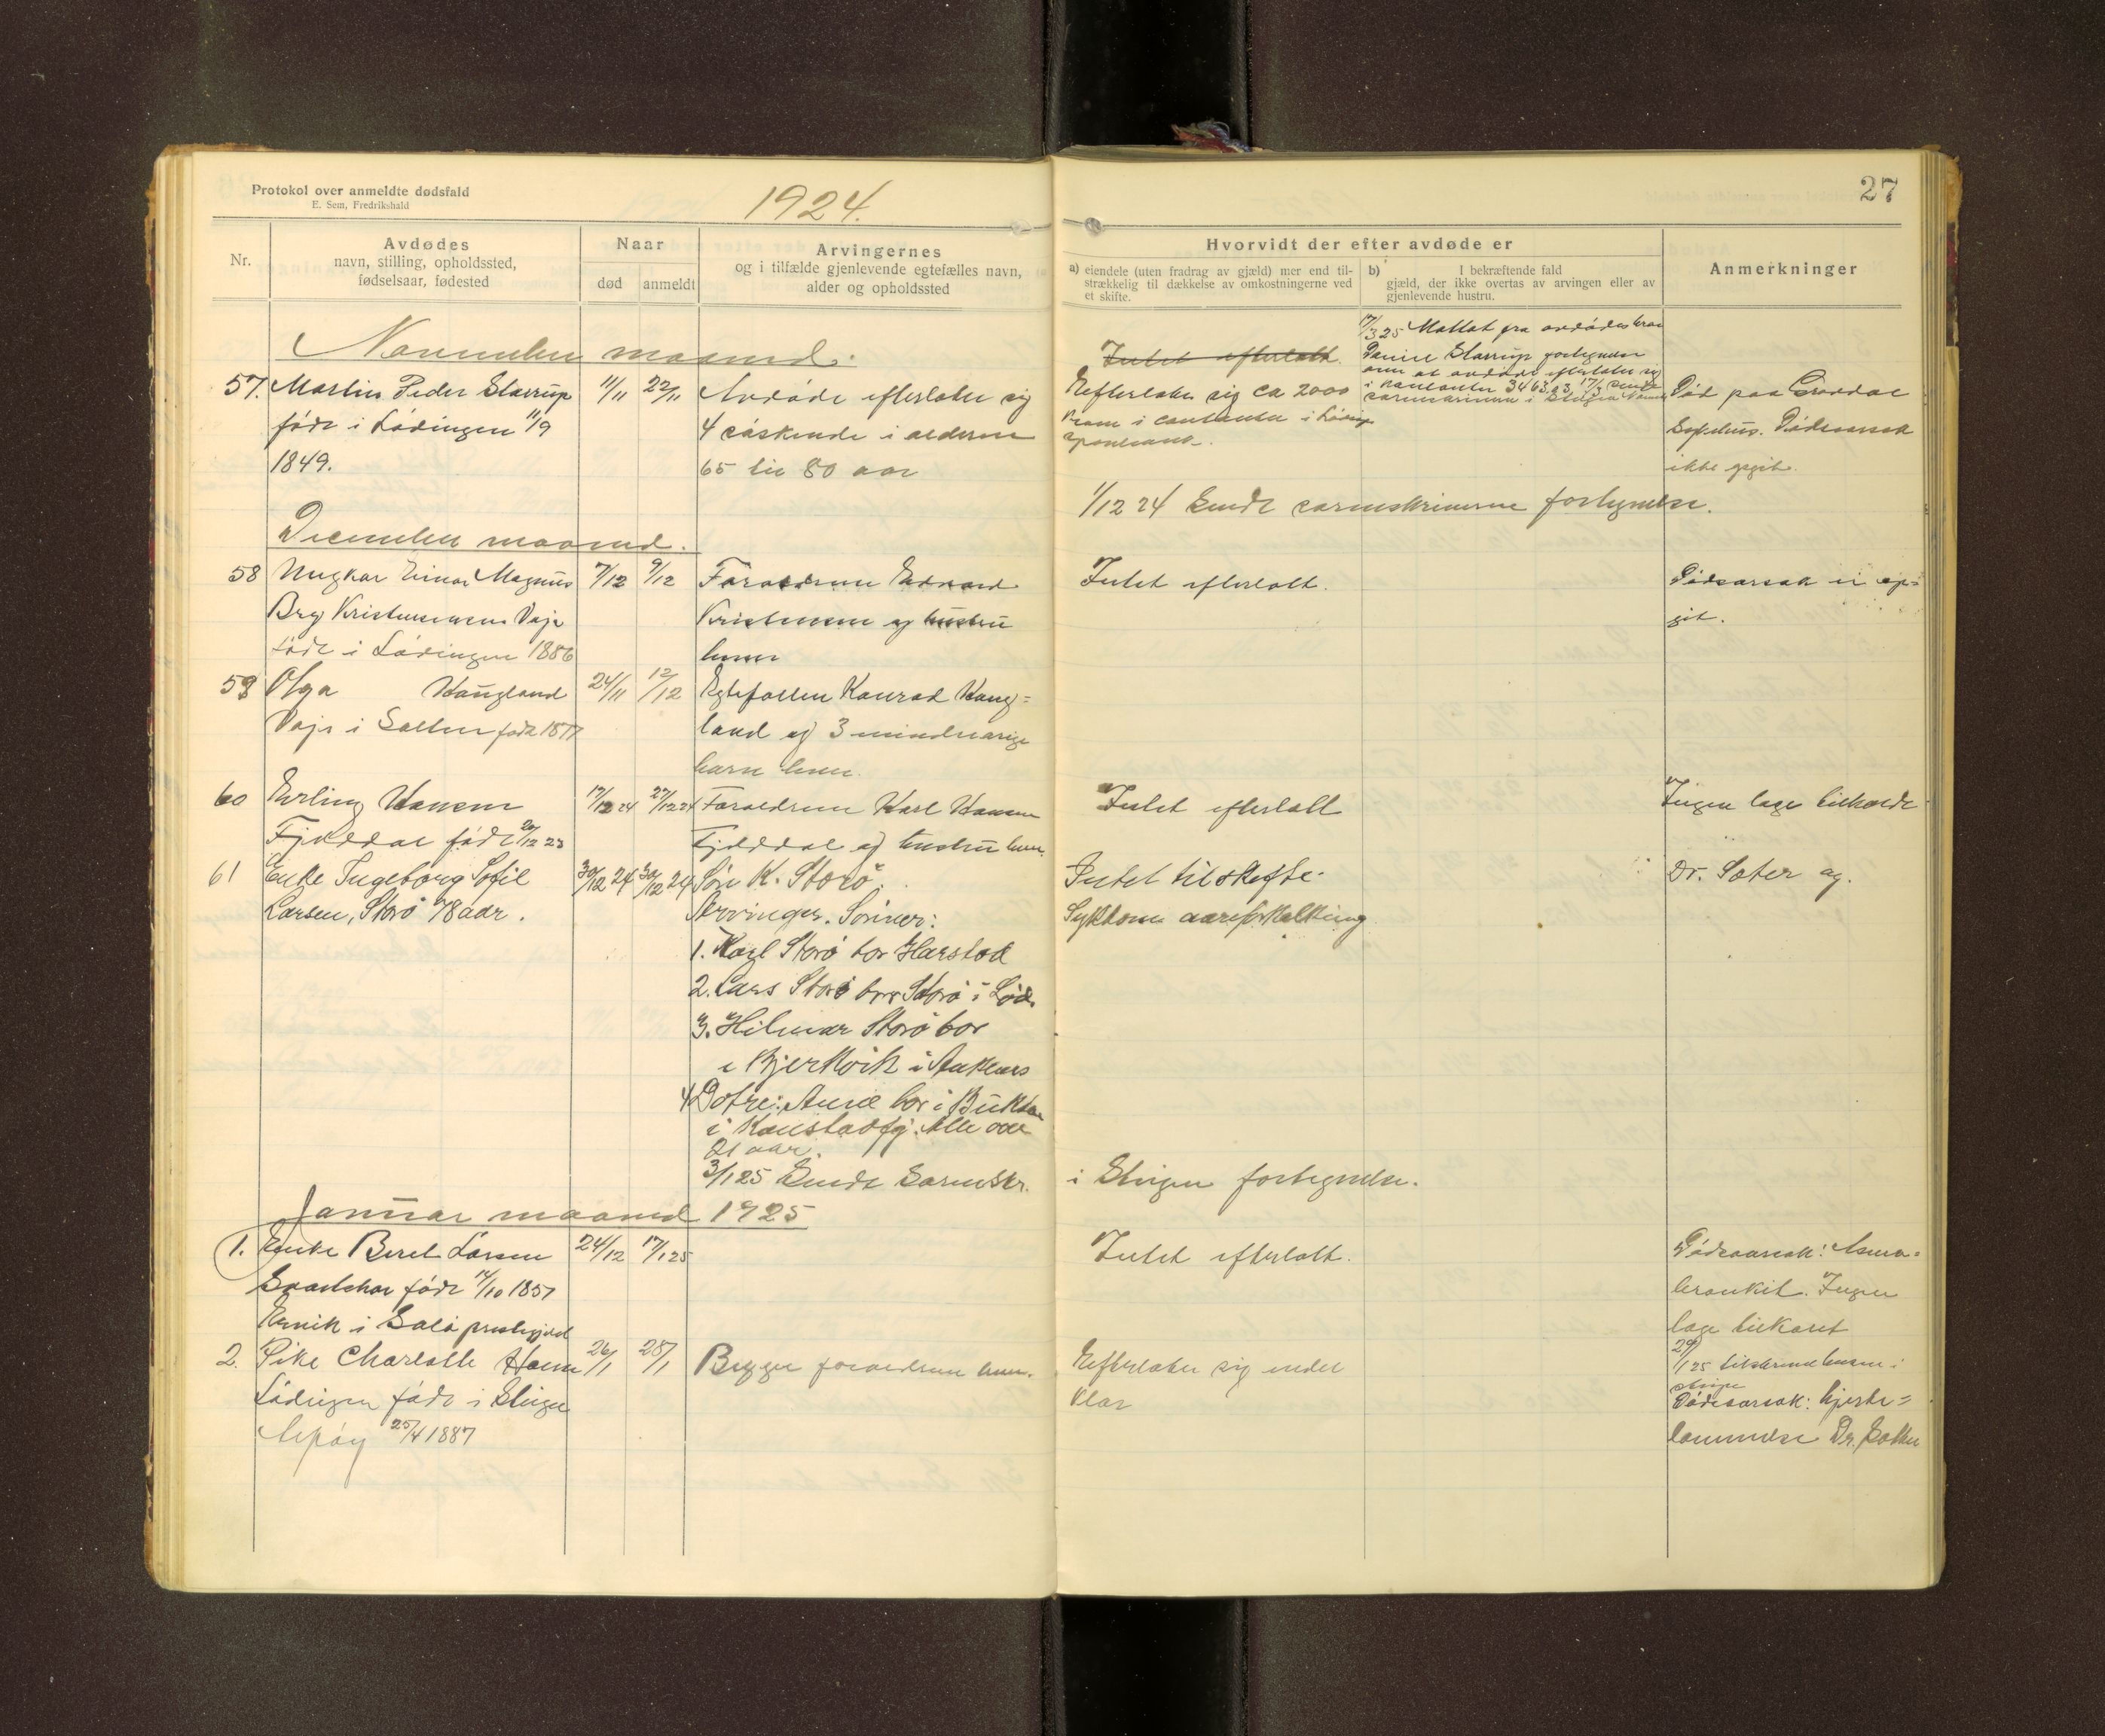 Protokol over anmeldte dødsfald
E. Sem, Fredrikshald
1924.
27
Nr.
Avdødes
navn, stilling, opholdssted,
fødselsaar, fødested
Naar
død
anmeldt
Arvingernes
og i tilfælde gjenlevende egtefælles navn,
alder og opholdssted
Hvorvidt der efter avdøde er
a) eiendele (uten fradrag av gjæld) mer end til-
strækkelig til dækkelse av omkostningerne ved
et skifte.
b) I bekræftende fald
gjæld, der ikke overtas av arvingen eller av
gjenlevende hustru.
Anmerkninger
November maaned.
57. Martin Peder Starrup
født i Lødingen 11/9
1849.
11/11 22/11
Avdøde efterlater sig
4 søskende i alderen
65 til 80 aar
Intet efterlatt.
Efterlater sig ca 2000
kroner i contanter i Lødingen
sparebank.
17/3 25 Mottat fra avdødes bror
Starrup fortegnelse
over at avdøde efterlater sig
i kontanter 3463,03, 17/3 sendt
Død paa Gravdal
Sykehus. Dødsaarsak
ikke opgit.
1/12 24 Sendt sorenskriveren fortegnelse.
December maaned.
58 Einar Magnus
Berg Kristensen Vaje
født i Lødingen 1886
7/12 9/12
Forældrene Edvard
Kristensen og hustru
lever
Intet efterlatt.
Dødsaarsak ei op=
git.
59 Olga Haugland
Vaje i Salten født 1877
24/11 12/12
Egtefællen Konrad Haug=
land og 3 mindreaarige
barn lever.
60 Erling Hansen
Fjelddal født 20/12 23
17/12 24 27/12 24
Forældrene Karl Hansen
Fjelddal og hustru lever.
Intet efterlatt
Ingen læge tilkaldt
61 Enke Ingeborg Sofie
Larsen, Storø 78 aar.
30/12 24 30/12 24
Søn K. Storø.
Arvinger. Sønner:
1. Karl Storø bor Harstad
2. Lars Storø bor Storø i Lød.
3. Hilmar Storø bor
i Bjerkvik i Ankenes
4 Dotre: Anne bor i Bukten
i Kanstadfj. Alle over
21 aar.
Intet til skifte.
Sykdom aareforkalkning
Dr. Sæter ag.
3/1 25 Sendt Sorenskr. i Steigen fortegnelse.
Januar maaned 1925
1. Enke Beret Larsen
født 14/10 1857
i prestegjeld
24/12 17/1 25
Intet efterlatt.
Dødsaarsak: Asma=
bronkit. Ingen
læge tilkaldt
2. Pike Charlotte Holm
Lødingen født i Steigen
25/4 1887
26/1 28/1
Begge forældrene lever.
Efterlater sig endel
klær
29/1 25
Dødsaarsak: hjerte=
lammelse Dr.